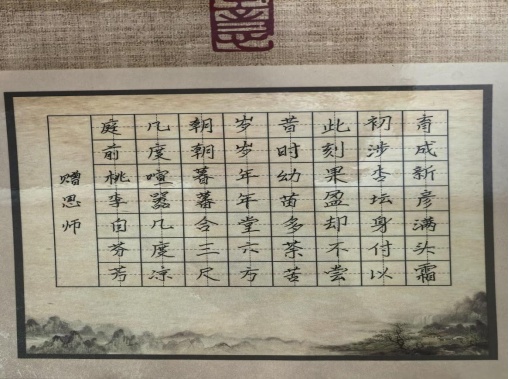 赠恩师
庭前桃李自芬芳
几度喧嚣几度凉
朝朝暮暮合三尺
岁岁年年堂六方
昔时幼苗多荼苦
此刻果盈却不尝
初涉杏坛身付以
育成新彦满头霜